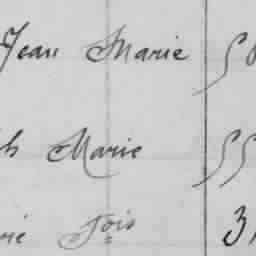 Jean Marie 5
h Marie 55
né Fois 3